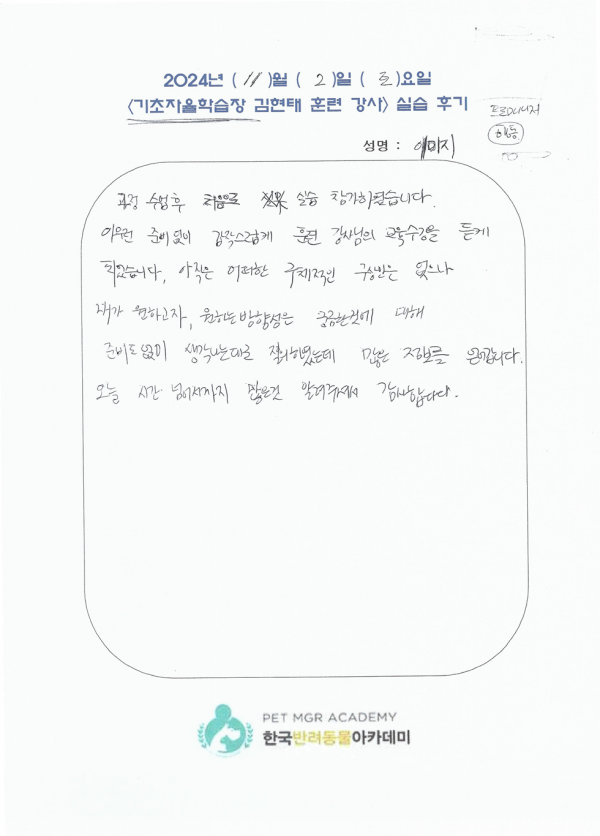 2024년 (11)월 ( 2 )일 ( 토 )요일
〈기초자율학습장 김현태 훈련 강사〉 실습 후기
프로매니저
행동
성명 : 이미지
과정 수업후 처음으로 실습 참가하였습니다.
아무런 준비없이 갑작스럽게 훈련 강사님의 교육수강을 듣게
되었습니다, 아직은 어떠한 구체적인 구상안은 없으나
내가 원하고자, 원하는방향성은 궁금한것에 대해
준비도없이 생각나는대로 질의하였는데 많은 정보를 얻어갑니다.
오늘 시간 넘어서까지 많은것 알려주셔서 감사합니다.
PET MGR ACADEMY
한국반려동물아카데미